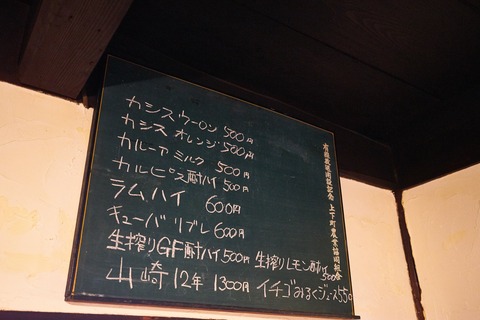 カシスウーロン 500円
カシスオレンジ 500円
カルーアミルク 500円
カルピス酎ハイ 500円
ラムハイ 600円
キューバリブレ 600円
生搾りGF酎ハイ 500円 生搾りレモン酎ハイ 500
山崎12年 1300円 イチゴみるくジュース550
有線放送開設記念 上下町農業協同組合